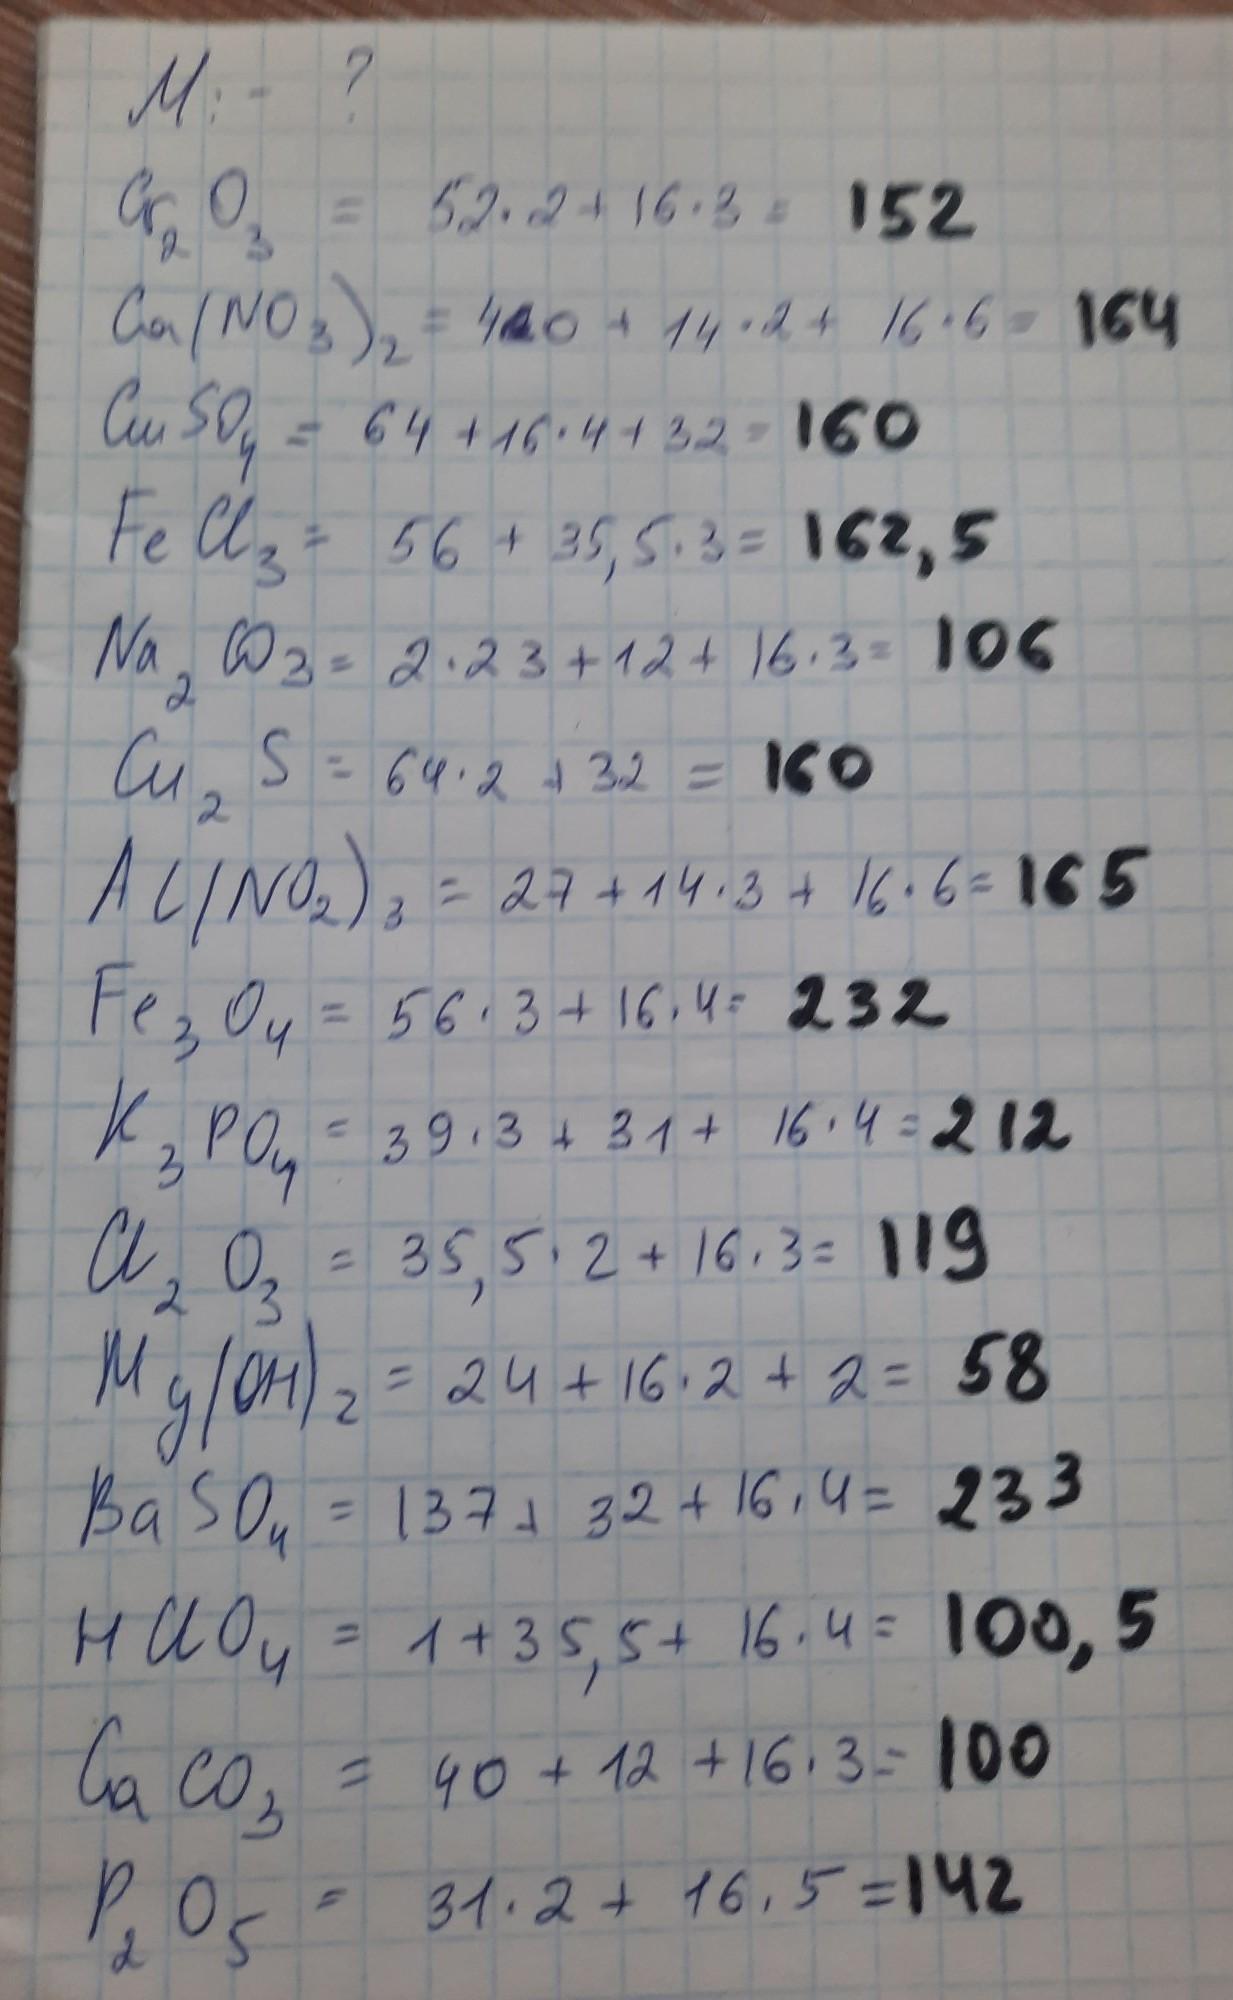 M: - ?
Cr₂O₃ = 52·2+16·3= 152
Ca(NO₃)₂ = 40 + 14·2+ 16·6= 164
CuSO₄ = 64+16·4+32= 160
FeCl₃ = 56 + 35,5·3= 162,5
Na₂CO₃ = 2·23+12+ 16·3= 106
Cu₂S = 64·2 +32 = 160
Al(NO₂)₃ = 27+14·3+ 16·6= 165
Fe₃O₄ = 56·3+16·4= 232
K₃PO₄ = 39·3+31+ 16·4= 212
Cl₂O₃ = 35,5·2+16·3= 119
Mg(OH)₂ = 24+16·2+2= 58
BaSO₄ = 137+ 32+16·4= 233
HClO₄ = 1+35,5+ 16·4= 100,5
CaCO₃ = 40+12+16·3= 100
P₂O₅ = 31·2+ 16·5=142